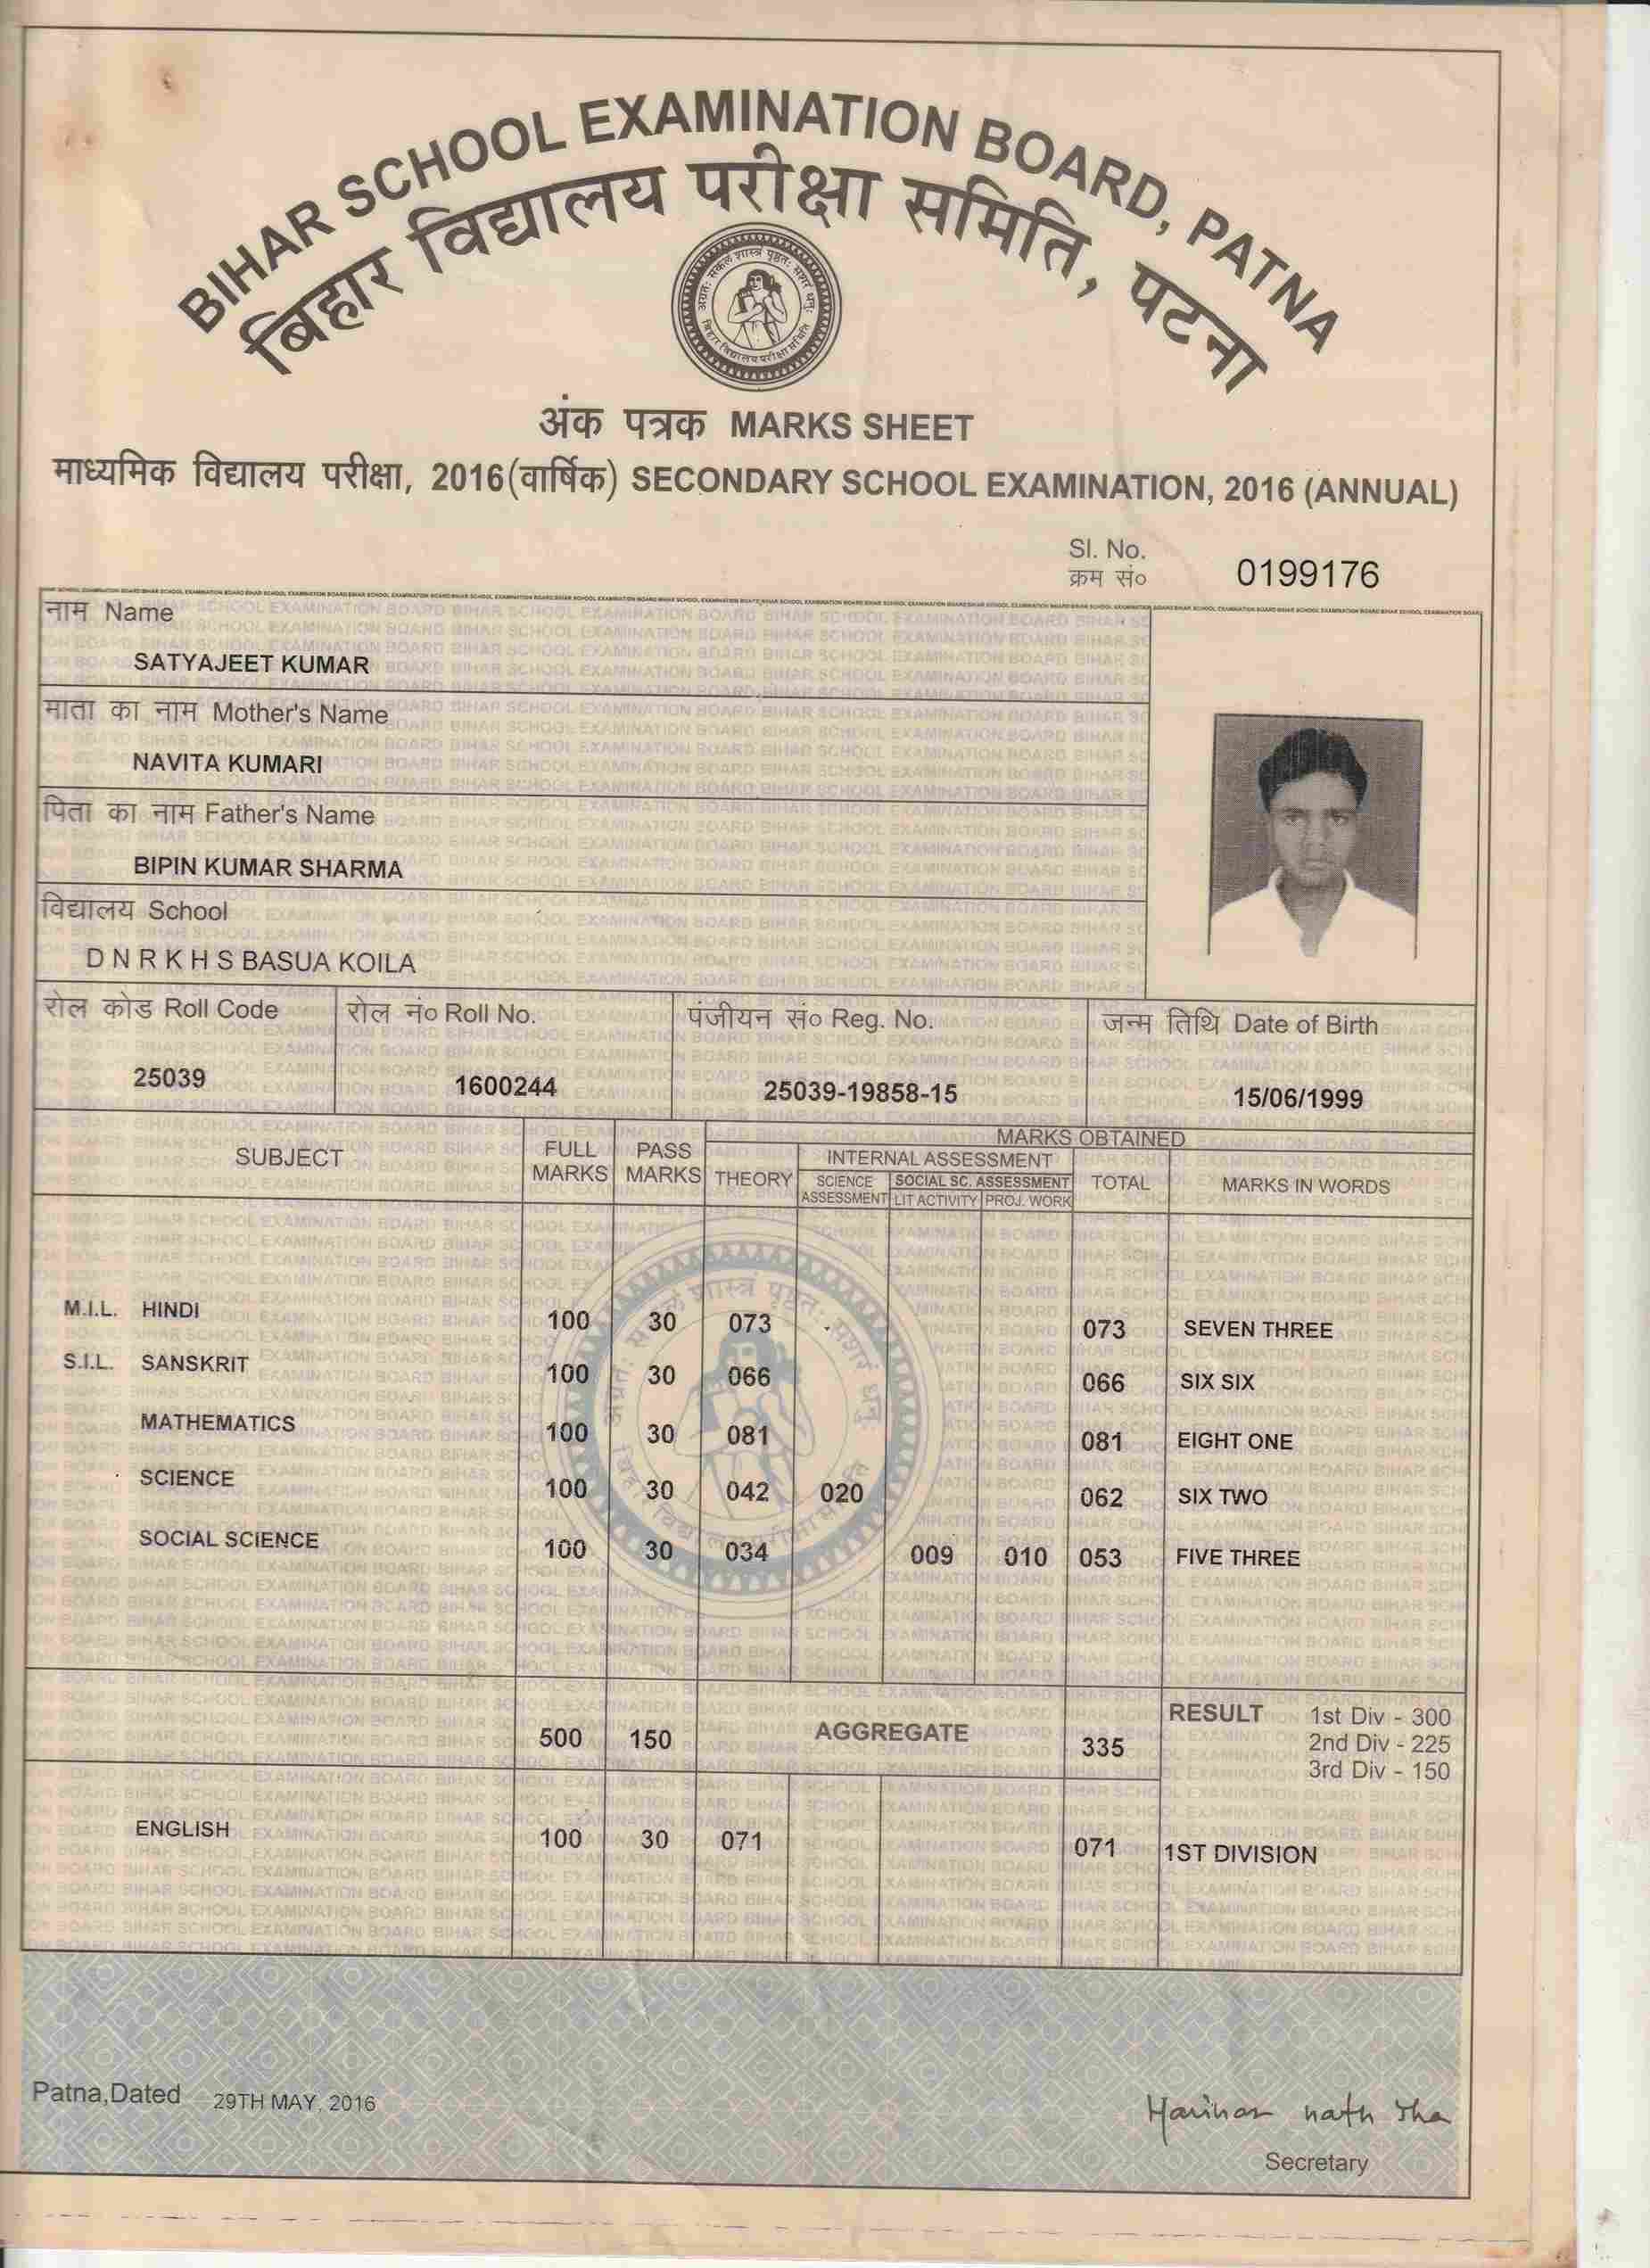 BIHAR SCHOOL EXAMINATION BOARD, PATNA
बिहार विद्यालय परीक्षा समिति, पटना
अंक पत्रक MARKS SHEET
माध्यमिक विद्यालय परीक्षा, 2016(वार्षिक) SECONDARY SCHOOL EXAMINATION, 2016 (ANNUAL)
Sl. No.
क्रम सं० 0199176
नाम Name
SATYAJEET KUMAR
माता का नाम Mother's Name
NAVITA KUMARI
पिता का नाम Father's Name
BIPIN KUMAR SHARMA
विद्यालय School
D N R K H S BASUA KOILA
रोल कोड Roll Code रोल नं० Roll No. पंजीयन सं० Reg. No. जन्म तिथि Date of Birth
25039 1600244 25039-19858-15 15/06/1999
SUBJECT FULL MARKS PASS MARKS MARKS OBTAINED
THEORY INTERNAL ASSESSMENT TOTAL MARKS IN WORDS
SCIENCE ASSESSMENT SOCIAL SC. ASSESSMENT
LIT ACTIVITY PROJ. WORK
M.I.L. HINDI 100 30 073 073 SEVEN THREE
S.I.L. SANSKRIT 100 30 066 066 SIX SIX
MATHEMATICS 100 30 081 081 EIGHT ONE
SCIENCE 100 30 042 020 062 SIX TWO
SOCIAL SCIENCE 100 30 034 009 010 053 FIVE THREE
500 150 AGGREGATE 335 RESULT 1st Div - 300
2nd Div - 225
3rd Div - 150
ENGLISH 100 30 071 071 1ST DIVISION
Patna,Dated 29TH MAY, 2016
Harihar nath Jha
Secretary